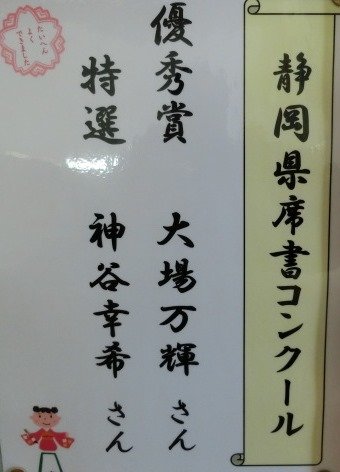 静岡県席書コンクール
優秀賞 大場万輝さん
特選 神谷幸希さん
たいへん
よく
できました